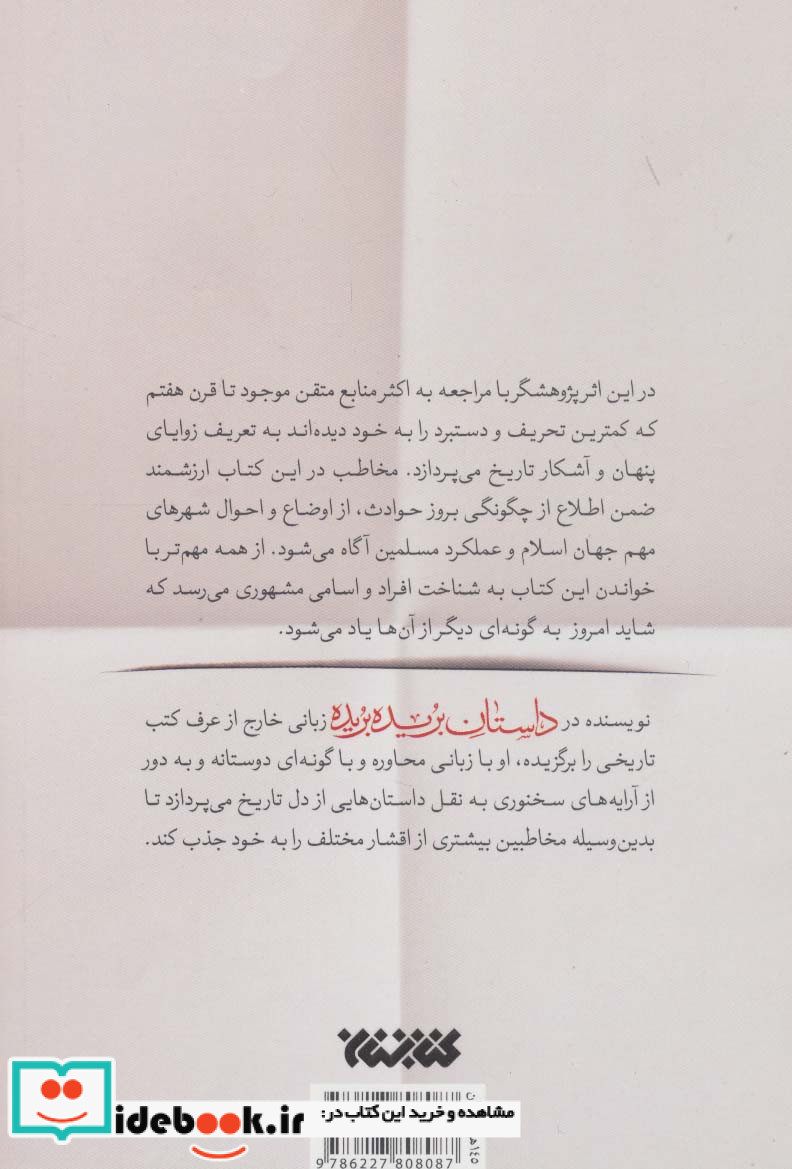 در این اثر پژوهشگر با مراجعه به اکثر منابع متقن موجود تا قرن هفتم
که کمترین تحریف و دستبرد را به خود دیده‌اند به تعریف زوایای
پنهان و آشکار تاریخ می‌پردازد. مخاطب در این کتاب ارزشمند
ضمن اطلاع از چگونگی بروز حوادث، از اوضاع و احوال شهرهای
مهم جهان اسلام و عملکرد مسلمین آگاه می‌شود. از همه مهم‌تر با
خواندن این کتاب به شناخت افراد و اسامی مشهوری می‌رسد که
شاید امروز به گونه‌ای دیگر از آن‌ها یاد می‌شود.
نویسنده در داستانِ بریده بریده زبانی خارج از عرف کتب
تاریخی را برگزیده، او با زبانی محاوره و با گونه‌ای دوستانه و به دور
از آرایه‌های سخنوری به نقل داستان‌هایی از دل تاریخ می‌پردازد تا
بدین‌وسیله مخاطبین بیشتری از اقشار مختلف را به خود جذب کند.
کتابستان
مشاهده و خرید این کتاب در:
idebook.ir
9 786227 808087